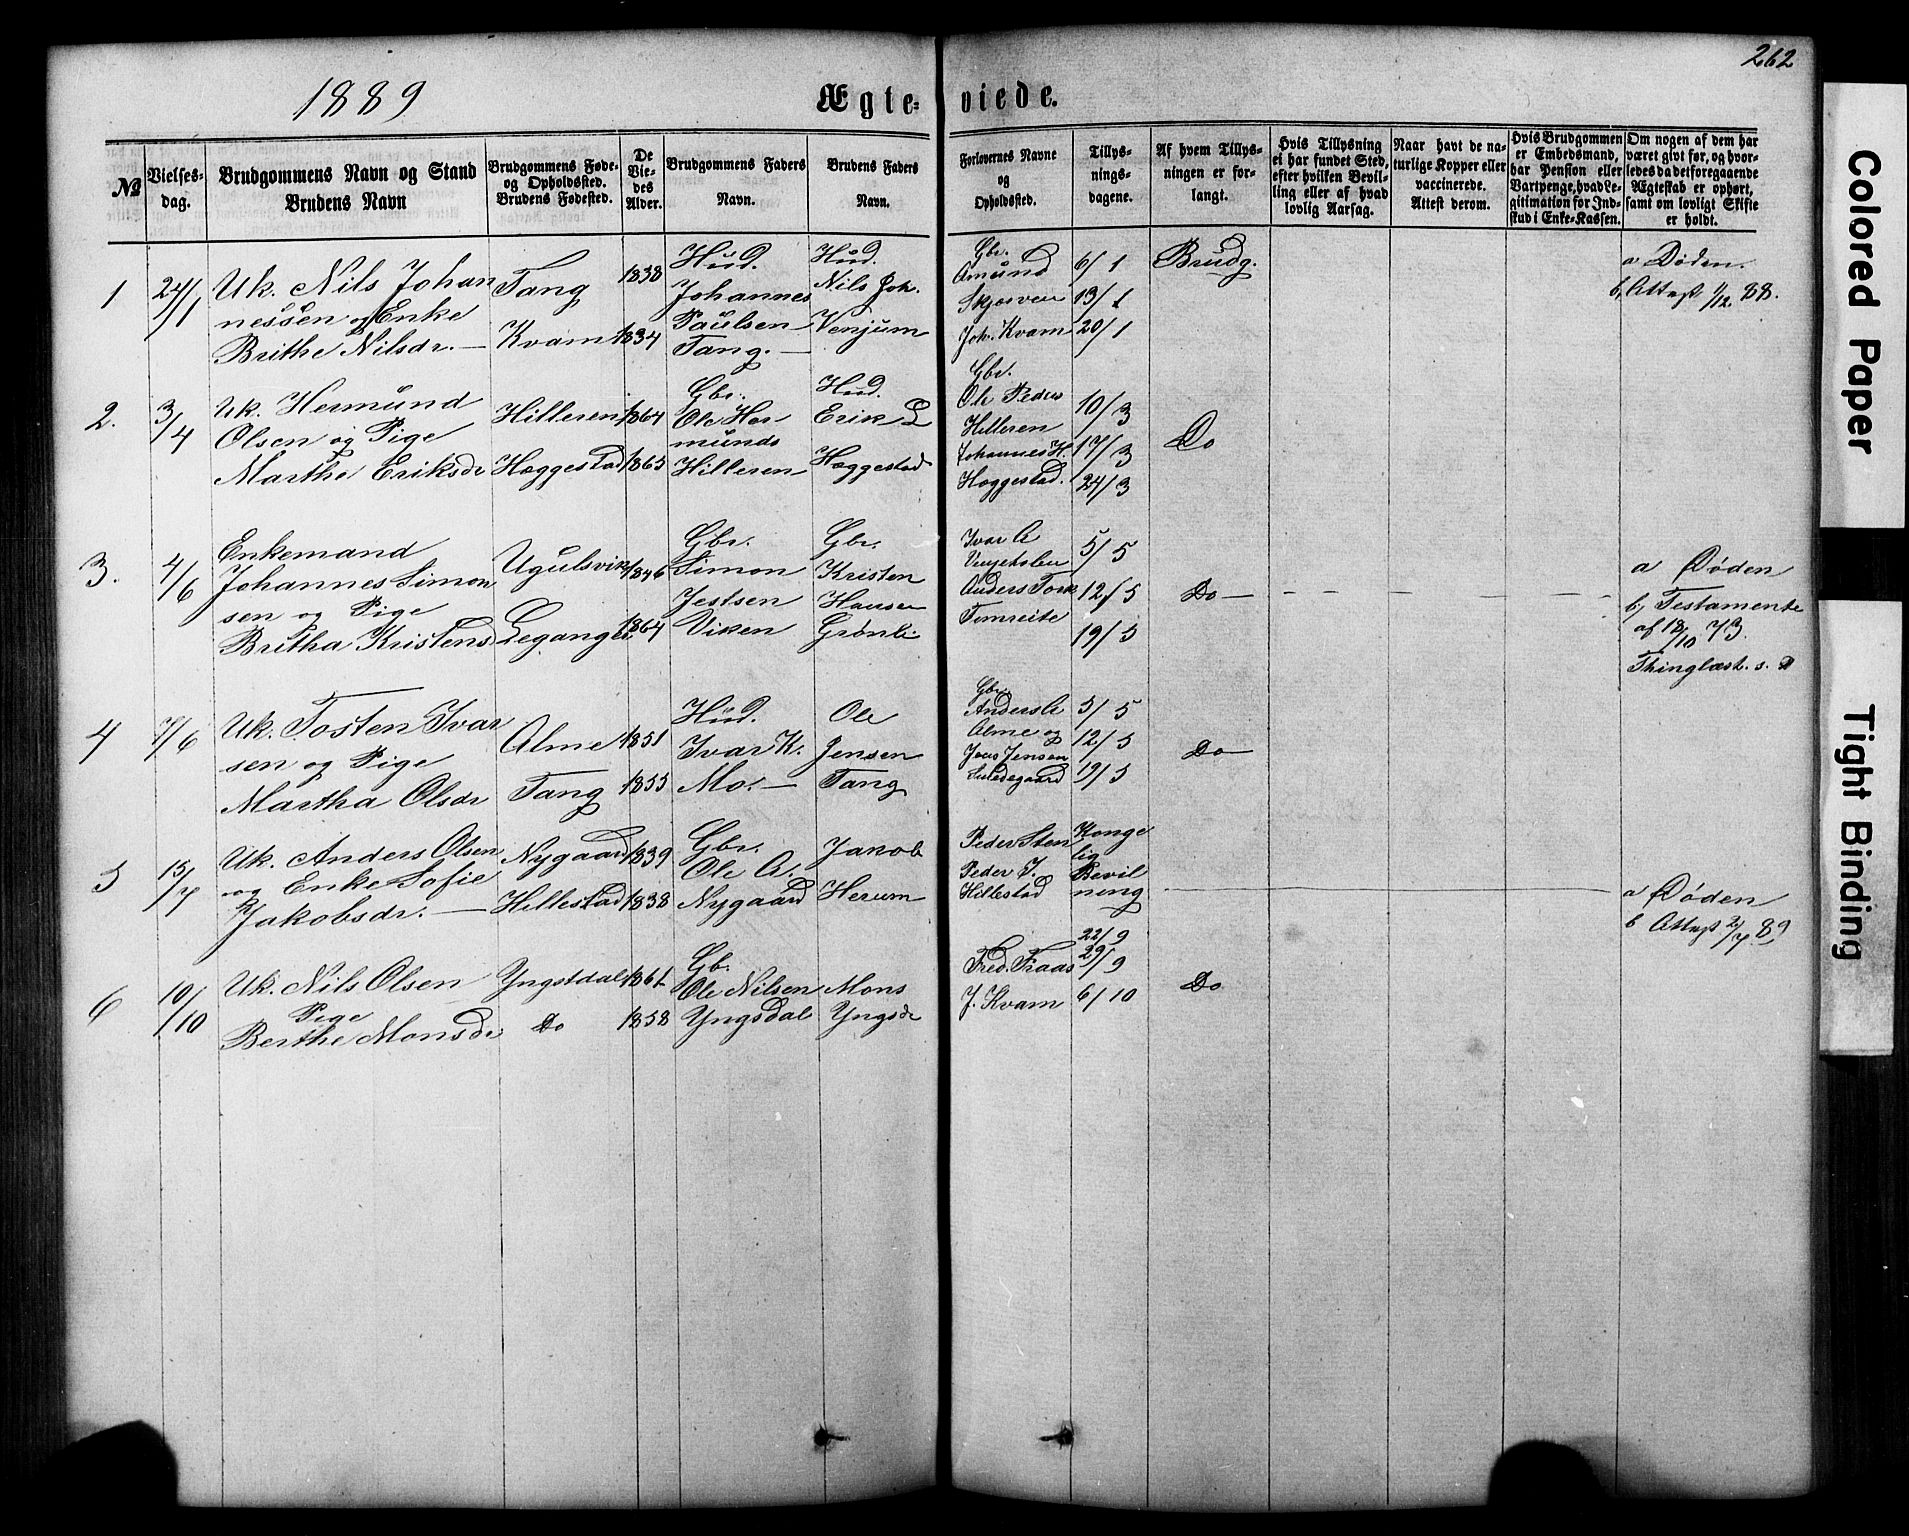 262
1889
Ægte- viede.
№
Vielses-
dag.
Brudgommens Navn og Stand
Brudens Navn
Brudgommens Føde-
og Opholdssted.
Brudens Fødested.
De
Vie-
des
Alder.
Brudgommens Faders
Navn.
Brudens Faders
Navn.
Forlovernes Navne
og
Opholdssted.
Tillys-
nings-
dagene.
Af hvem Tillys-
ningen er for-
langt.
Hvis Tillysning
ei har fundet Sted,
efter hvilken Bevil-
ling eller af hvad
lovlig Aarsag.
Naar havt de na-
turlige Kopper eller
vaccinerede.
Attest derom.
Hvis Brudgommen
er Embedsmand,
har Pension eller
Vartpenge, hvad Le-
gitimation for Ind-
skud i Enke-Kassen.
Om nogen af dem har
været givt før, og hvor-
ledes da det foregaaende
Ægteskab er ophørt,
samt om lovligt Skifte
er holdt.
1
24/1
Uk. Nils Johan
nessen og Enke
Brithe Nilsdr. —
Tang
Kvam
1838
1834
Hud.
Johannes
Paulsen
Tang. —
Hud.
Nils Joh.
Venjum
Gbr.
Amund
Skjerven
Joh. Kvam
6/1
13/1
20/1
Brudg.
a Døden.
b, Attest 1/12 88.
2.
3/4
Uk. Hermund
Olsen og Pige
Marthe Eriksdr
Hilleren
Hæggestad
1864
1865
Gbr.
Ole Her
munds
Hilleren
Hud.
Erik L
Hæggestad
Gbr.
Ole Peders
Hilleren
Johannes H.
Hæggestad.
10/3
17/3
24/3
Do
3.
4/6
Enkemand
Johannes Simon
sen og Pige
Britha Kristensd
Ugulsvik
Leganger
1846
1864
Gbr.
Simon
Jestsen
Viken
Gbr.
Kristen
Hansen
Grønli
Ivar A
Anders Tork
Tomreite
5/5
12/5
19/5
Do —
a Døden
b, Testamente
af 18/10 73.
Thinglæst. s. D
4
7/6
Uk. Tosten Ivar
sen og Pige
Martha Olsdr
Alme
Tang
1851
1855
Hud.
Ivar K.
Mo. —
Ole
Jensen
Tang
Gbr.
Anders A
Alme og
Jens Jensen
5/5
12/5
19/5
Do —
5
15/7
Uk. Anders Olsen
og Enke Sofie
Jakobsdr. —
Nygaard
Hillestad
1839
1838
Gbr.
Ole A.
Nygaard
Jakob
Herum
Peder Sten
Peder J.
Hillestad
Konge
lig
Bevil
ning
a Døden
b Attest 2/7 89
6
10/10
Uk. Nils Olsen
Pige
Berthe Monsdr
Yngstdal
Do
1861
1858
Gb.
Ole Nilsen
Yngsdal
Mons
Yngsd
Fred. Fraas
J. Kvam
22/9
29/9
6/10
Do
Colored Paper
Tight Binding